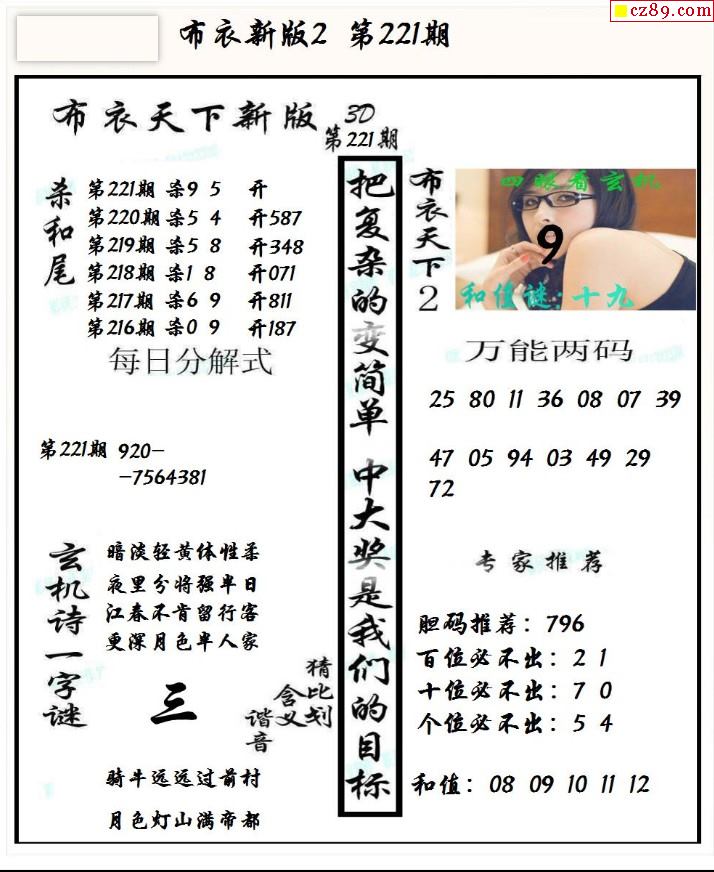 cz89.com
布衣新版2 第221期
布衣天下新版 3D
第221期
杀和尾
第221期 杀9 5 开
第220期 杀5 4 开587
第219期 杀5 8 开348
第218期 杀1 8 开071
第217期 杀6 9 开811
第216期 杀0 9 开187
每日分解式
第221期 920-
-7564381
玄机诗一字谜
暗淡轻黄体性柔
夜里分将强半日
江春不肯留行客
更深月色半人家
三
猜比划
含义
谐音
骑牛远远过前村
月色灯山满帝都
把复杂的变简单 中大奖是我们的目标
布衣天下2
四眼看玄机
9
和值谜:十九
万能两码
25 80 11 36 08 07 39
47 05 94 03 49 29
72
专家推荐
胆码推荐：796
百位必不出：2 1
十位必不出：7 0
个位必不出：5 4
和值：08 09 10 11 12